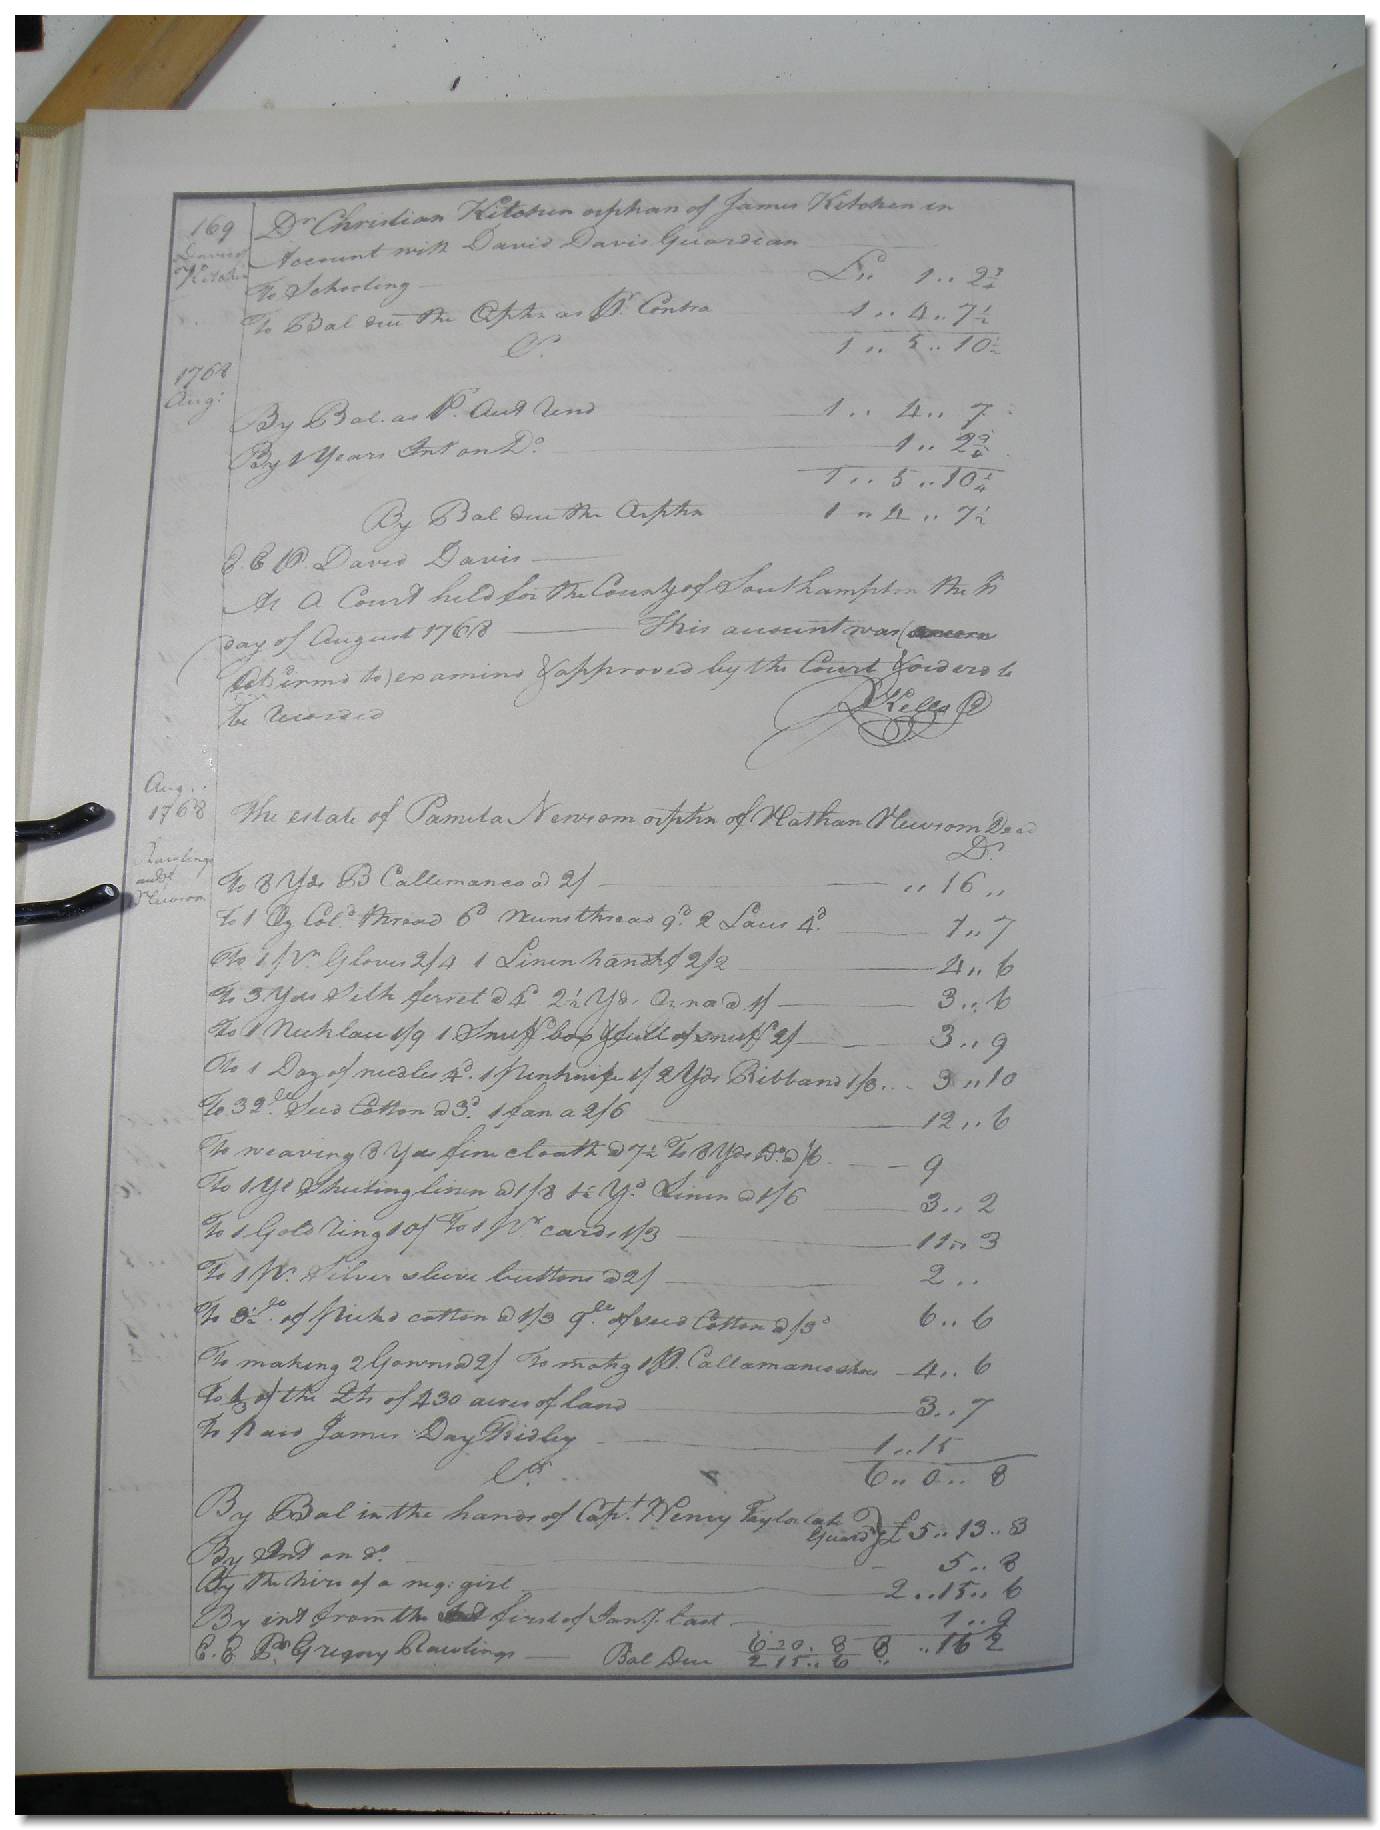 169
Davis
Kitchin
Dr Christian Kitchen orphan of James Kitchen in
Account with David Davis Guardian
To Schooling £ " 1 .. 2 3/4
To Bal due the Orphn as Pr. Contra 1 .. 4 .. 7 1/2
1 .. 5 .. 10 1/2
Cr.
1768
Aug:
By Bal. as Pr. Acct Rend 1 .. 4 .. 7
By 1 Years Int on Do. 1 .. 2 3/4
1 .. 5 .. 10 1/4
By Bal due the Orphn 1 " 4 .. 7 1/2
E E Pr. David Davis
At A Court held for the County of Southampton the
day of August 1768 This account was
to) examined & approved by the Court & orderd to
be recorded
R Kello
Aug..
1768
Rawlings
acct
Newsom
The estate of Pamela Newsom orphn of Nathan Newsom Decd
Dr.
To 8 Yds B Callemanco @ 2/ .. 16 ..
To 1 Oz Cold. thread 6d Nuns thread 9d. 2 Laces 4d. 1 .. 7
To 1 Pr. Gloves 2/4 1 Linen handkf 2/2 4 .. 6
To 3 Yds Silk ferret @ 4d 2 1/2 Yds. @ 1/ 3 .. 6
To 1 Necklace 1/9 1 Snuff box & full of snuff 2/ 3 .. 9
To 1 Doz of needles 4d. 1 penknife 1/ 2 Yds Ribband 1/3. 3 .. 10
To 32 lb. Seed Cotton @ 3d. 1 fan a 2/6 12 .. 6
To weaving 8 Yds fine cloath @ 7 1/2 To 8 Yds Do. @ /6 9
To 1 Yd Sheeting linen @ 1/8 1 1/2 Yd. Linen @ 1/6 3 .. 2
To 1 Gold ring 10/ To 1 Pr cards 1/3 11 .. 3
To 1 Pr. Silver sleeve buttons @ 2/ 2 ..
To 3 1/2 lb. of Pickd cotton @ 1/3 9 lb. of seed Cotton @ /3d 6 .. 6
To making 2 Gowns @ 2/ To makg 1 Pr. Callamanco shoes 4 .. 6
To 1/3 of the Qts of 430 acres of land 3 .. 7
To Paid James Day Ridley 1 .. 15
6 .. 0 .. 8
Cr.
By Bal in the hands of Capt. Henry Taylor late Guard £ 5 .. 13 .. 3
By Int on do. 5 .. 8
By the hire of a neg: girl 2 .. 15 .. 6
By int from the first of Jany. last 1 .. 9
E. E Pr Gregory Rawlings Bal Due 6 " 0 .. 8 8 .. 16 2
2 15 .. 6